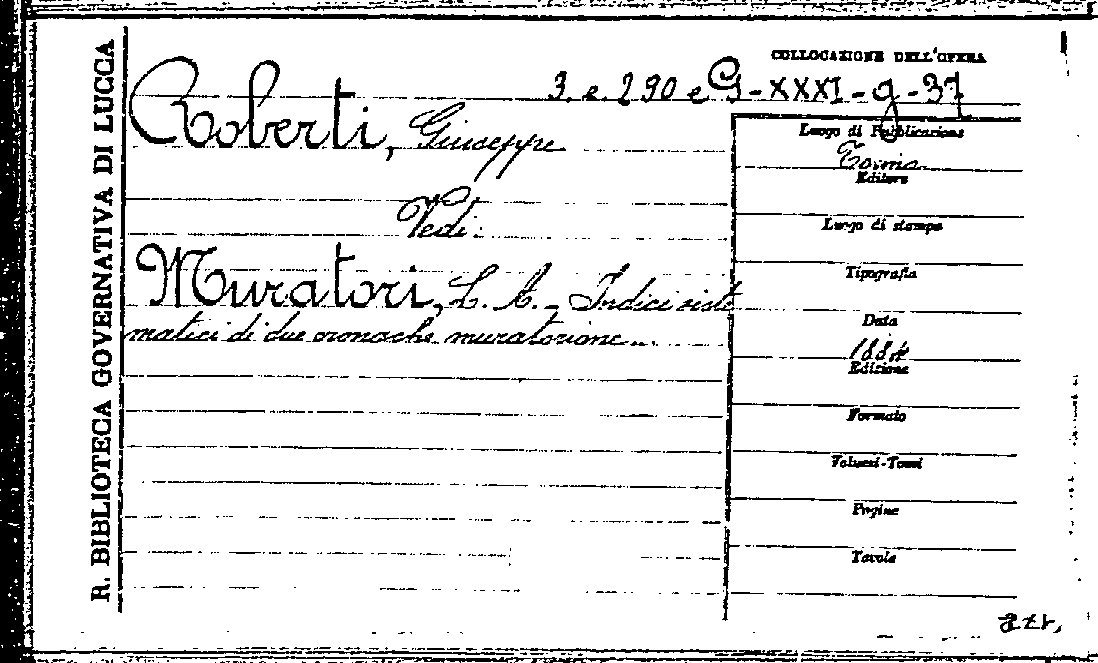 R. BIBLIOTECA GOVERNATIVA DI LUCCA
COLLOCAZIONE DELL'OPERA
3. e. 290 e G-XXXI-g-37
Roberti, Giuseppe
Vedi:
Muratori, L. A. - Indici siste
matici di due cronache muratoriane...
Luogo di Pubblicazione
Torino
Editore
Luogo di stampa
Tipografia
Data
Edizione
Formato
Volumi-Tomi
Pagine
Tavole